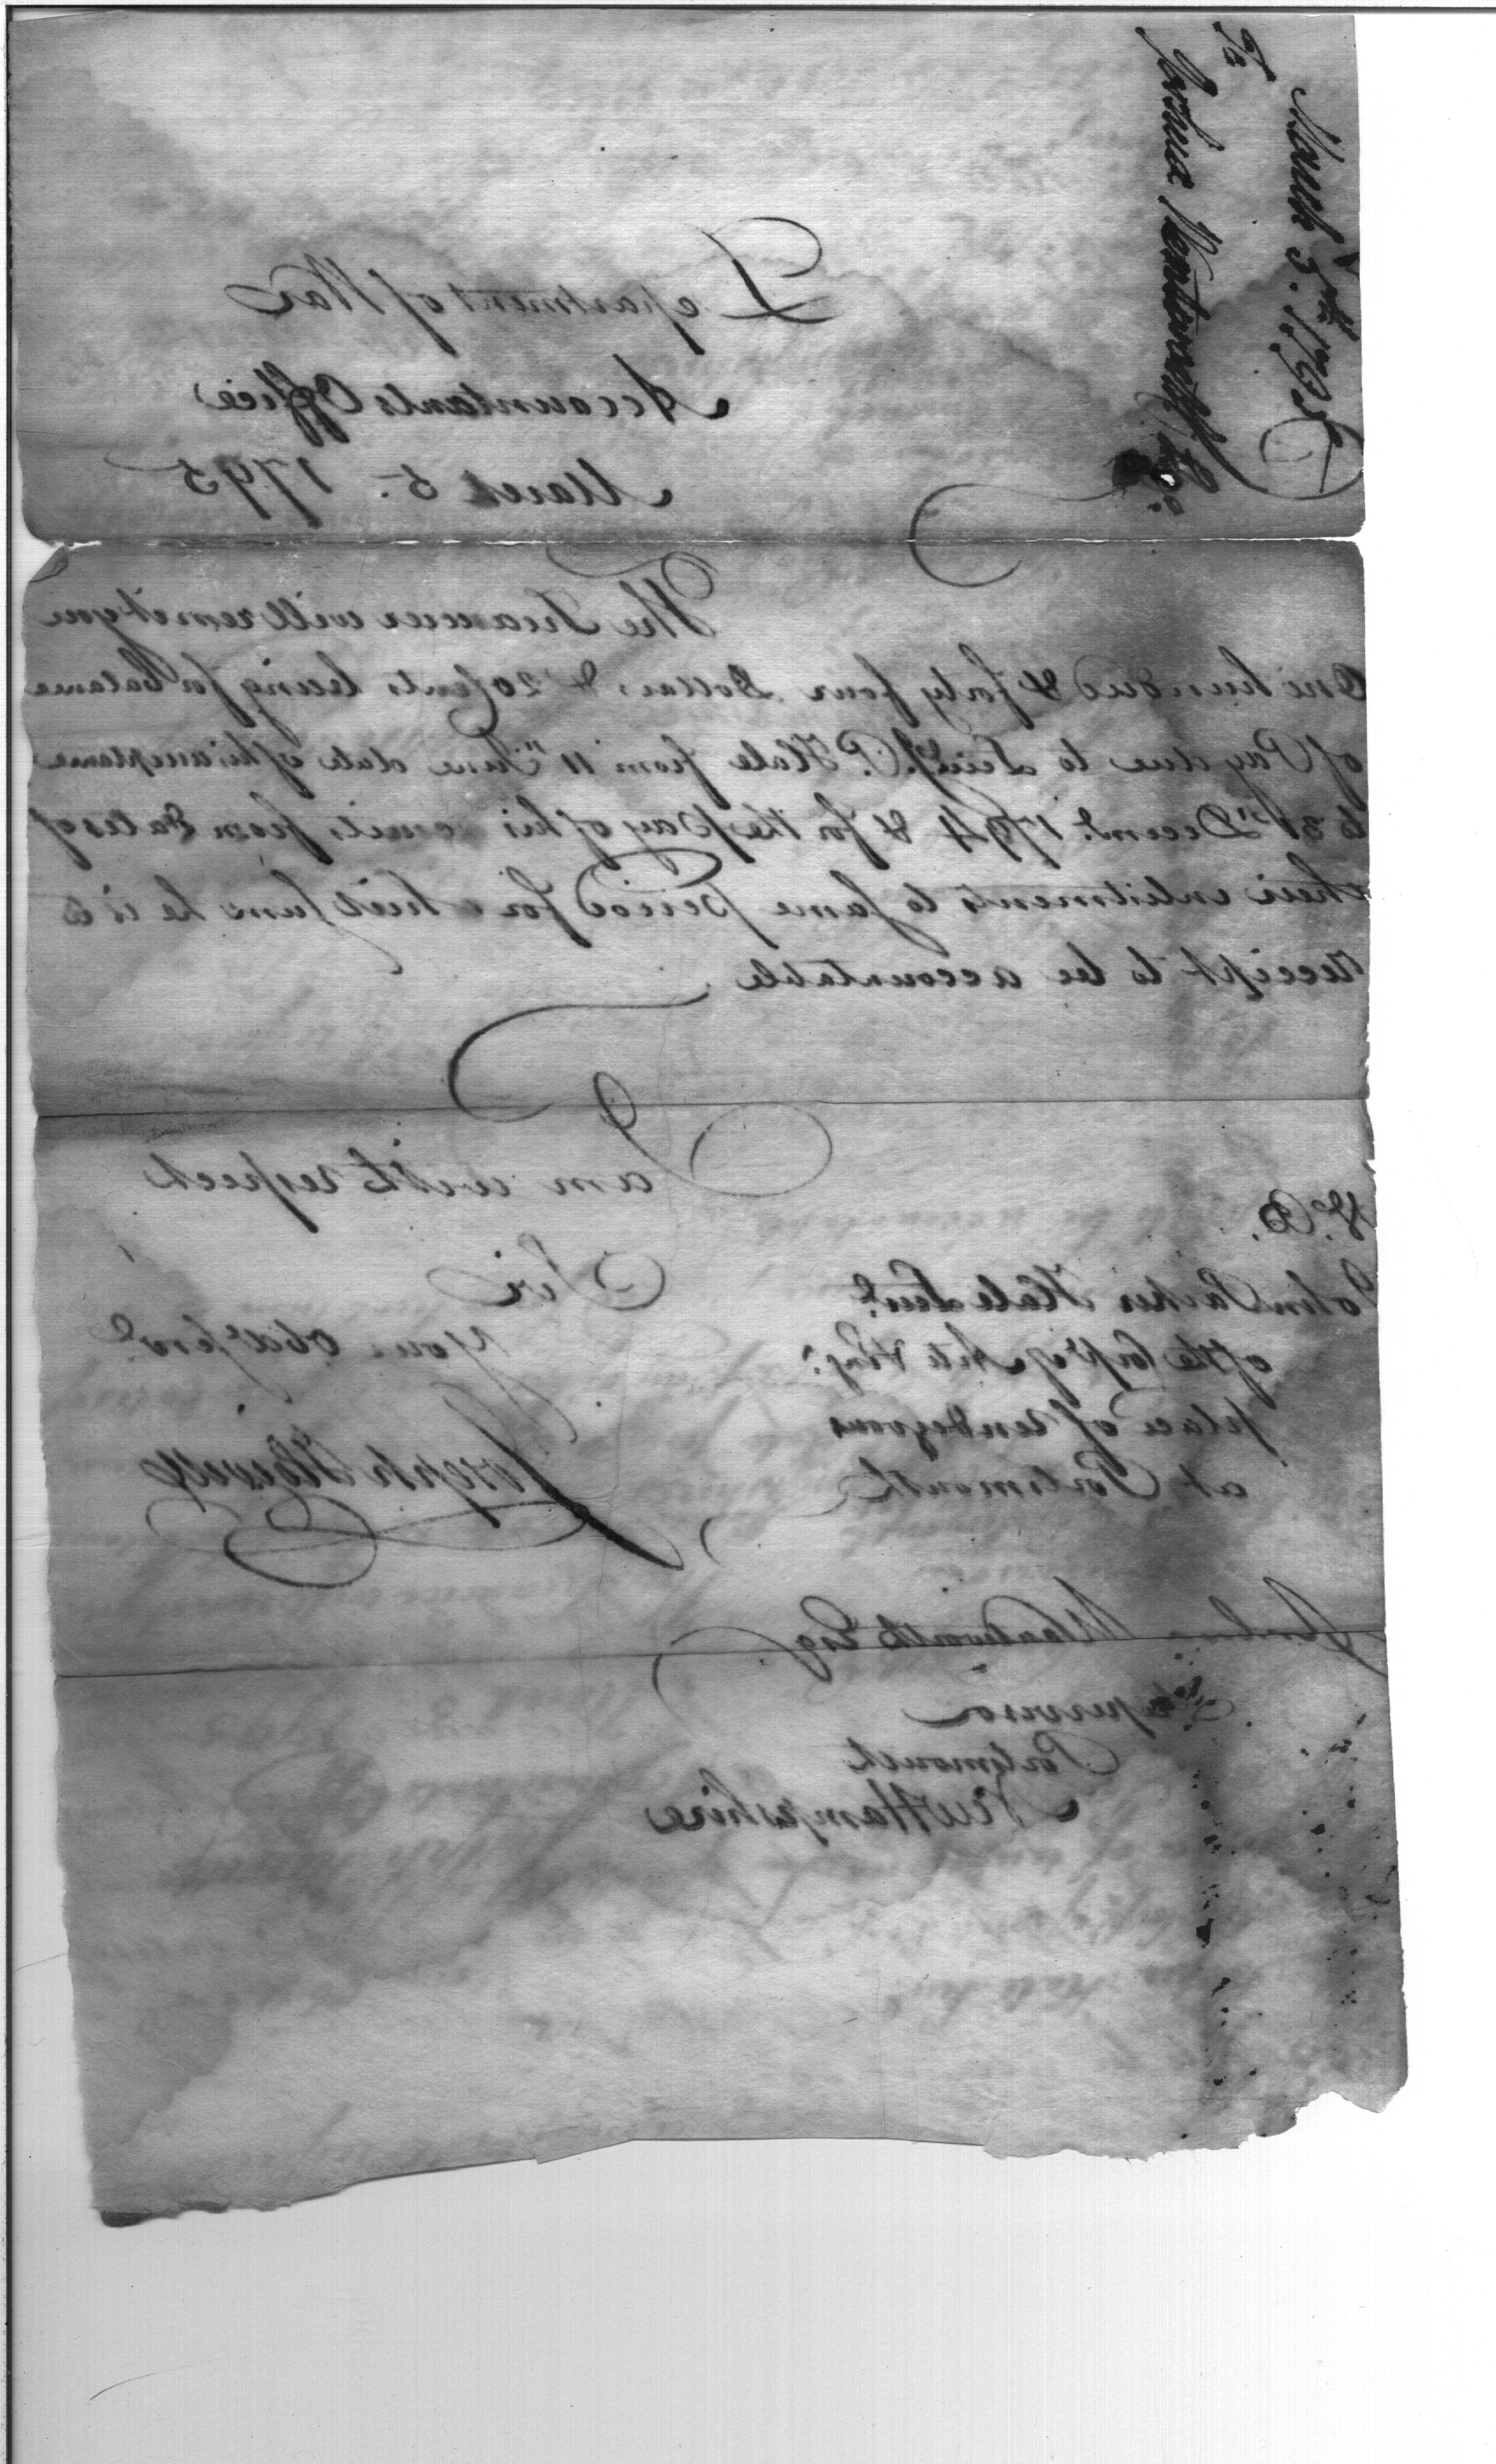 To
Joshua Wentworth Esqr.
March 5th 1795
Department of War
Accountants Office
March 5. 1795
The Treasurer will remit you
One hundred & forty four Dollars & 20 Cents being for balance
of Pay due to Lieut. J. P. Hale from 11th June date of his acceptance
to 31st Decemr. 1794 & for the pay of his recruits from dates of
their inlistments to same period for which sum he is to
receipt to be accountable.
I
am with respect
Sir
Your Obed Servt
Joseph Howell
N.B.
John Parker Hale Lieut.
of the Corps of Arts & Engs.
place of rendezvous
at Portsmouth
Joshua Wentworth Esq
Supervisor
Portsmouth
New Hampshire